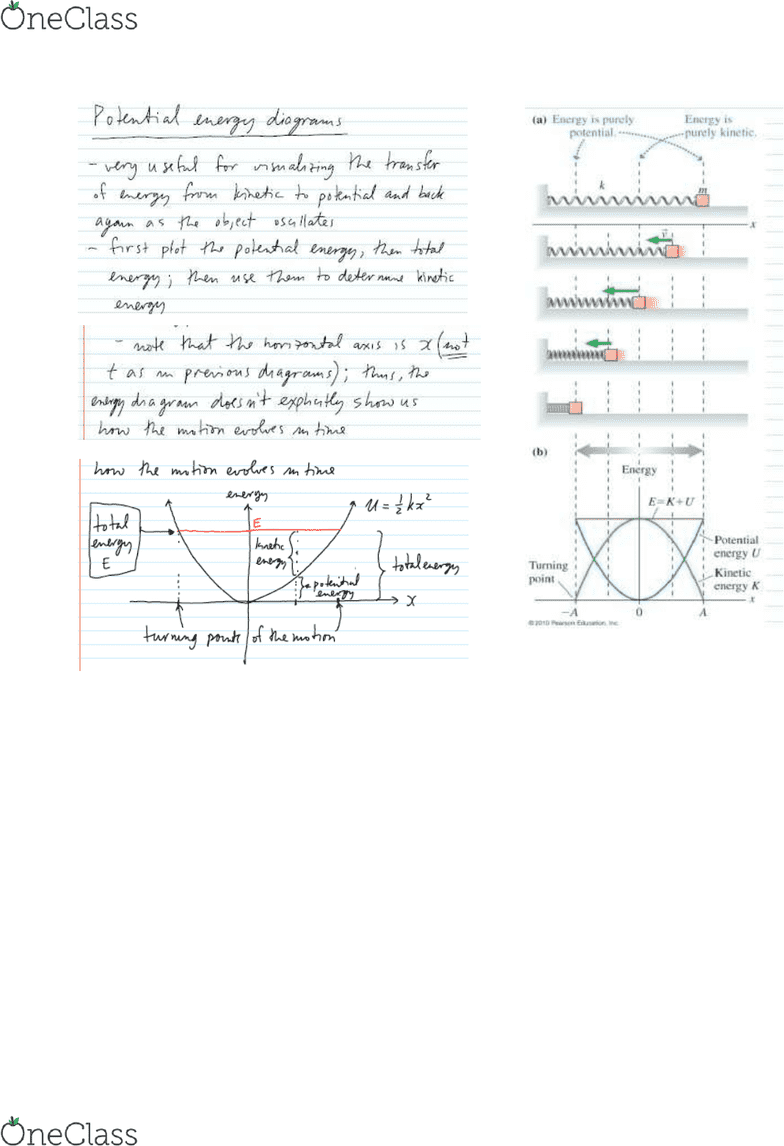 OneClass
Potential energy diagrams
- very useful for visualizing the transfer
of energy from kinetic to potential and back
again as the object oscillates
- first plot the potential energy, then total
energy; then use them to determine kinetic
energy
- note that the horizontal axis is x (not
t as in previous diagrams); thus, the
energy diagram doesn't explicitly show us
how the motion evolves in time
how the motion evolves in time
energy
U = ½kx²
total
energy
E
E
kinetic
energy
potential
energy
total energy
x
turning points of the motion
(a) Energy is purely
potential.
Energy is
purely kinetic.
k
m
x
v
(b)
Energy
E=K+U
Potential
energy U
Turning
point
Kinetic
energy K
x
−A
0
A
©2010 Pearson Education, Inc.
OneClass